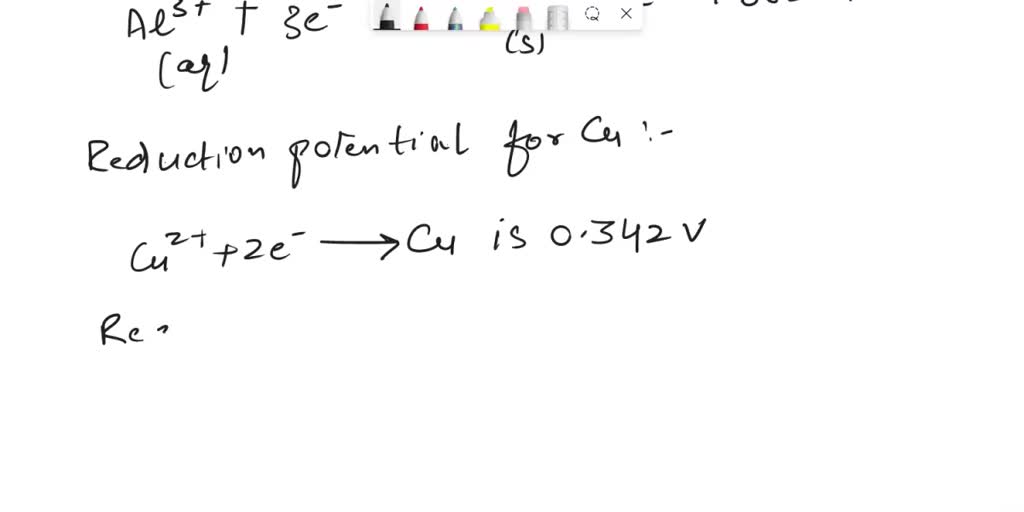 Al³⁺ + 3e⁻
(aq) (s)
Reduction potential for Cu :-
Cu²⁺ + 2e⁻ ⟶ Cu is 0.342 V
Re